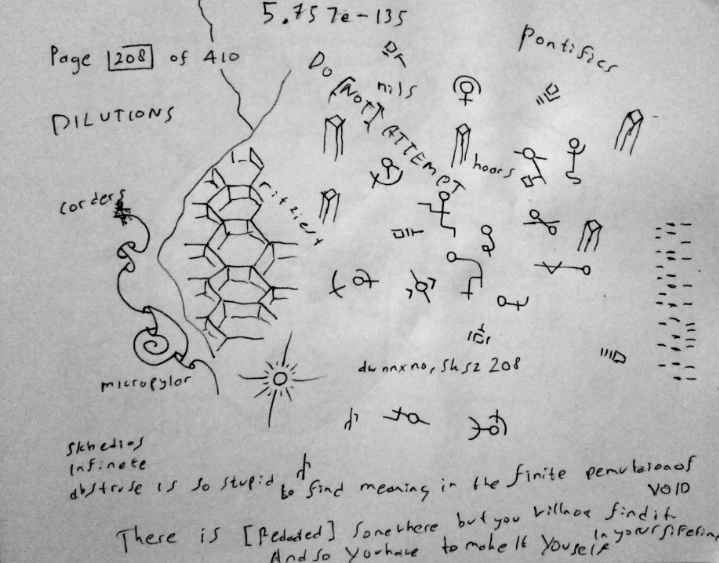 5.757e-135
Page 208 of 410
pontifics
Do [NOT] ATTEMPT
nils
DILUTIONS
hoors
ritziest
corders
micropylor
dwnnxno, shsz 208
skhedios
infinete
abstruse is so stupid to find meaning in the finite pemutaionof
VOID
There is [Redated] somewhere but you will noe find it
in your lifetime
And so you have to make it youself